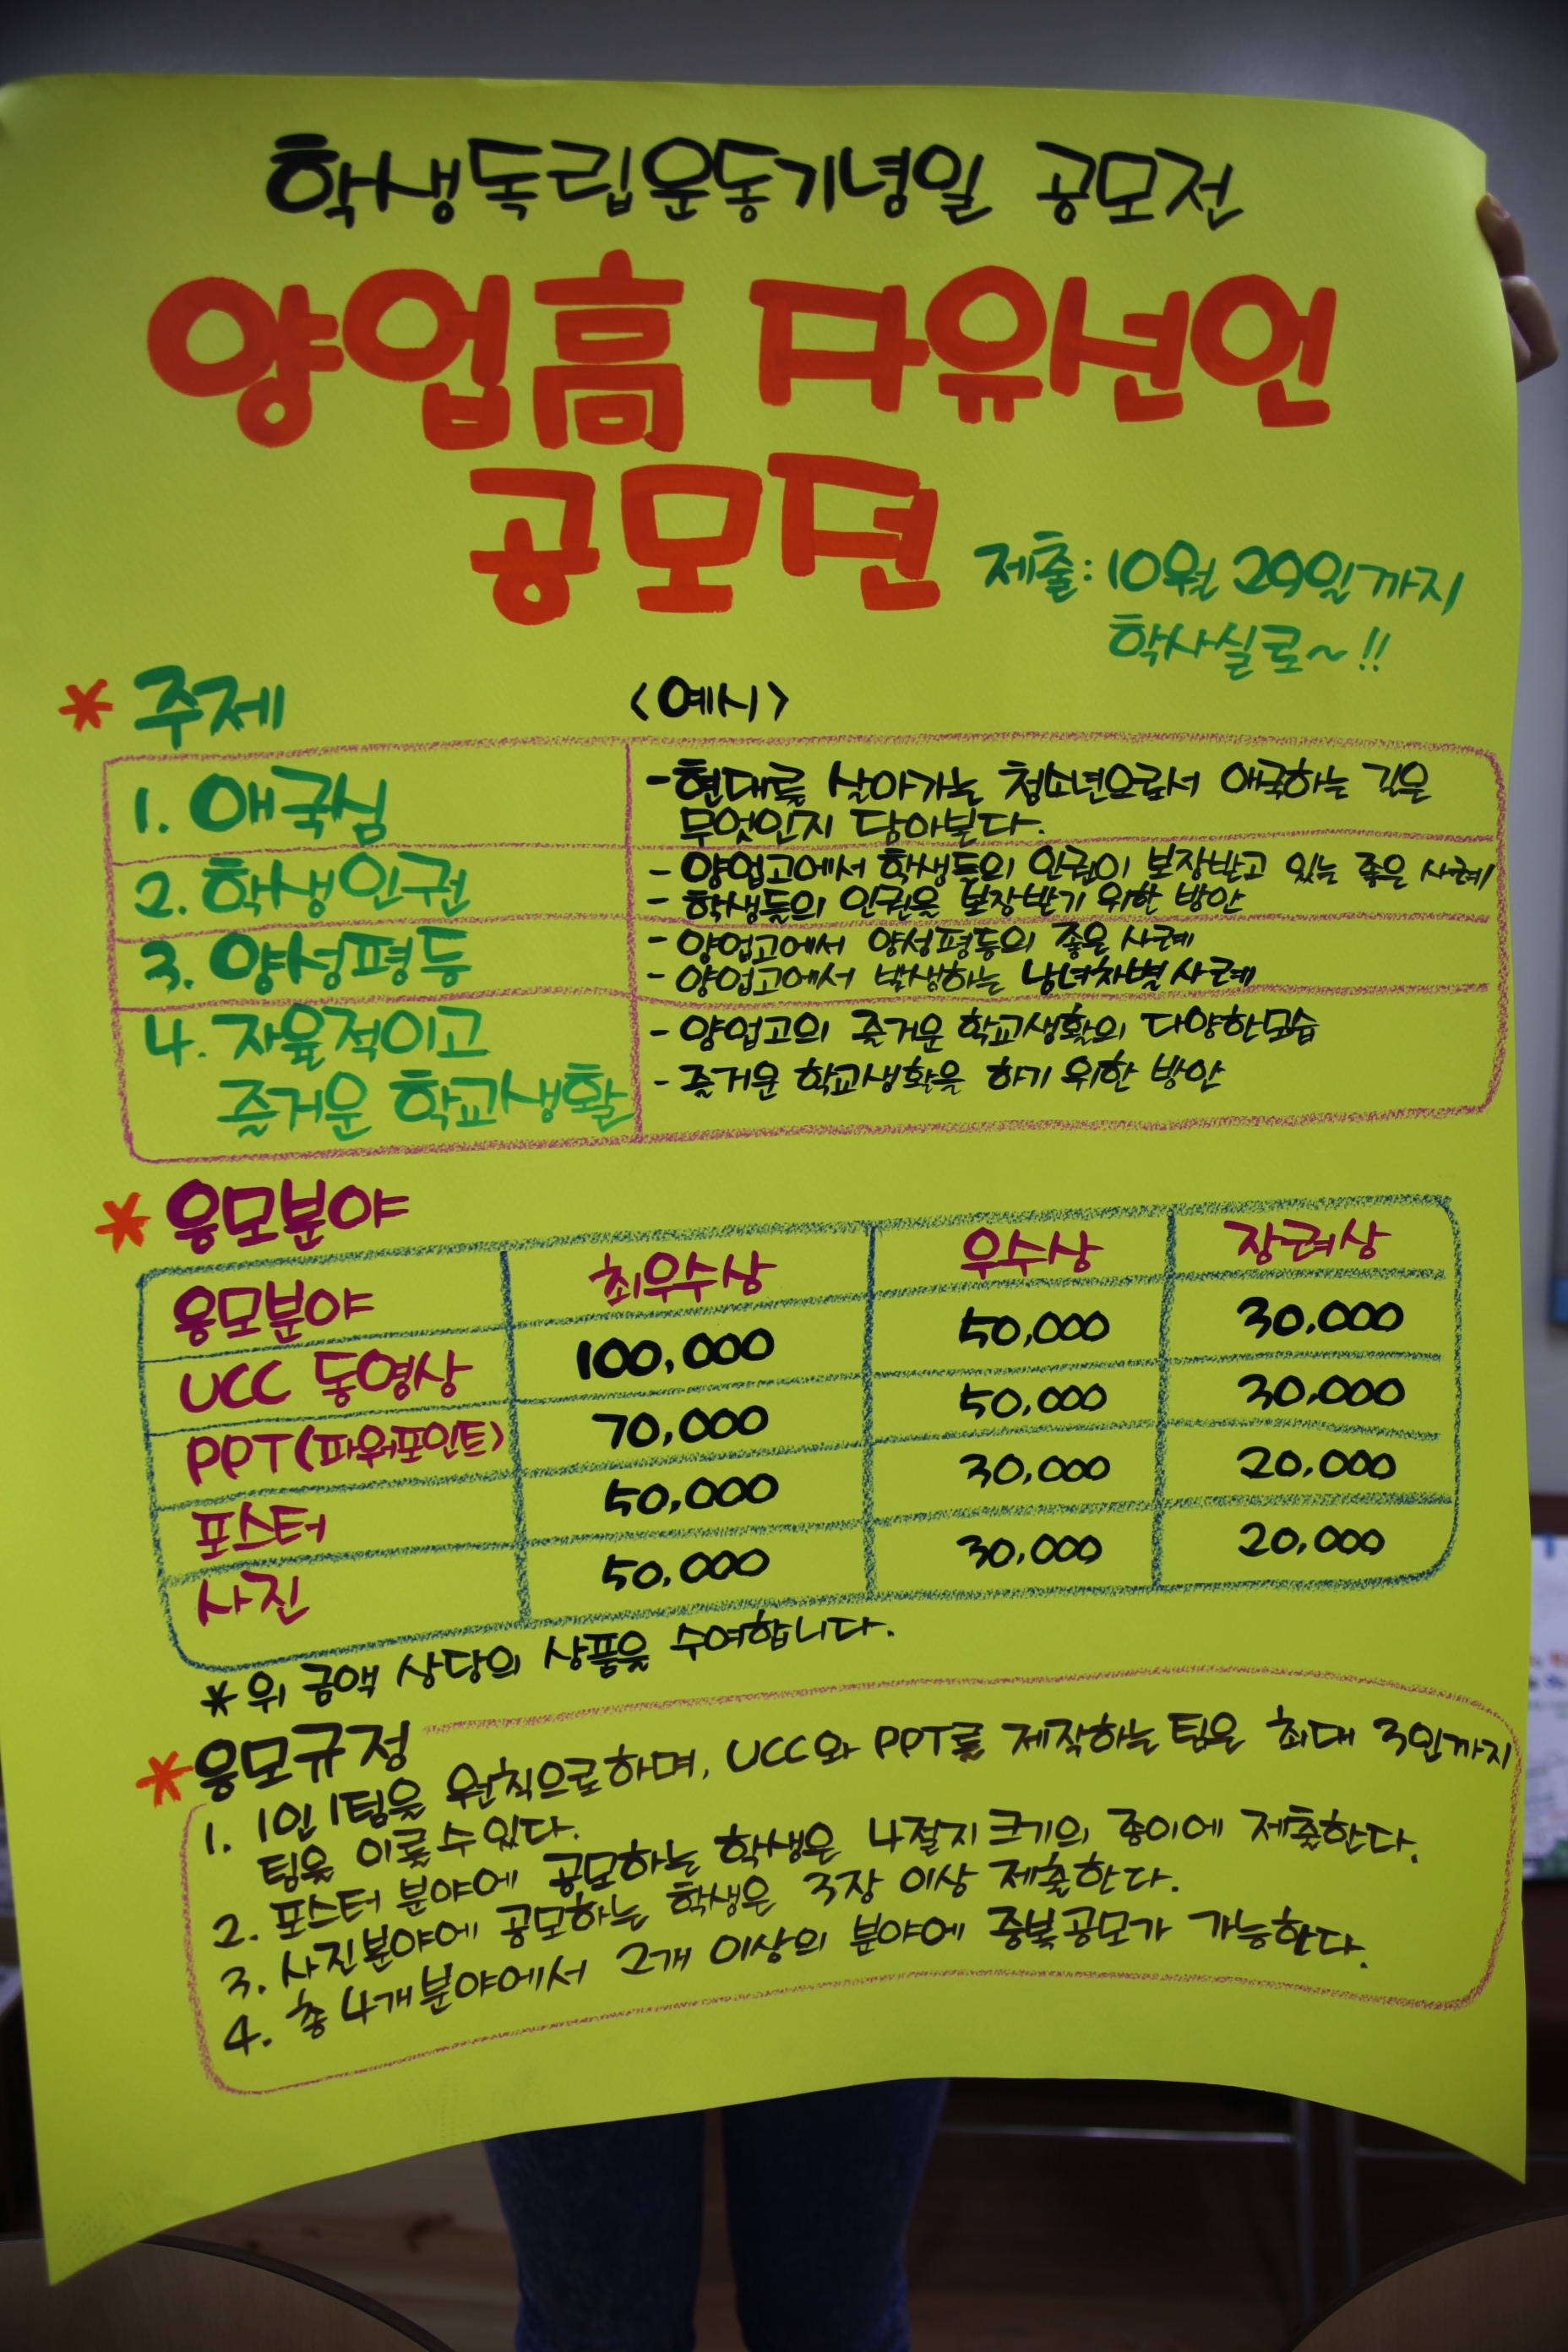 학생독립운동기념일 공모전
양업高 자유선언
공모전
제출: 10월 29일까지
학사실로~!!
* 주제
<예시>
1. 애국심
- 현대를 살아가는 청소년으로서 애국하는 길은
무엇인지 담아본다.
2. 학생인권
- 양업고에서 학생들의 인권이 보장받고 있는 좋은 사례
- 학생들의 인권을 보장받기 위한 방안
3. 양성평등
- 양업고에서 양성평등의 좋은 사례
- 양업고에서 발생하는 남녀차별 사례
4. 자율적이고
즐거운 학교생활
- 양업고의 즐거운 학교생활의 다양한 모습
- 즐거운 학교생활을 하기 위한 방안
* 응모분야
응모분야 최우수상 우수상 장려상
UCC 동영상 100,000 50,000 30,000
PPT(파워포인트) 70,000 50,000 30,000
포스터 50,000 30,000 20,000
사진 50,000 30,000 20,000
* 위 금액 상당의 상품을 수여합니다.
* 응모규정
1. 1인 1팀을 원칙으로하며, UCC와 PPT를 제작하는 팀은 최대 3인까지
팀을 이룰 수 있다.
2. 포스터 분야에 공모하는 학생은 4절지 크기의 종이에 제출한다.
3. 사진분야에 공모하는 학생은 3장 이상 제출한다.
4. 총 4개분야에서 2개 이상의 분야에 중복공모가 가능한다.